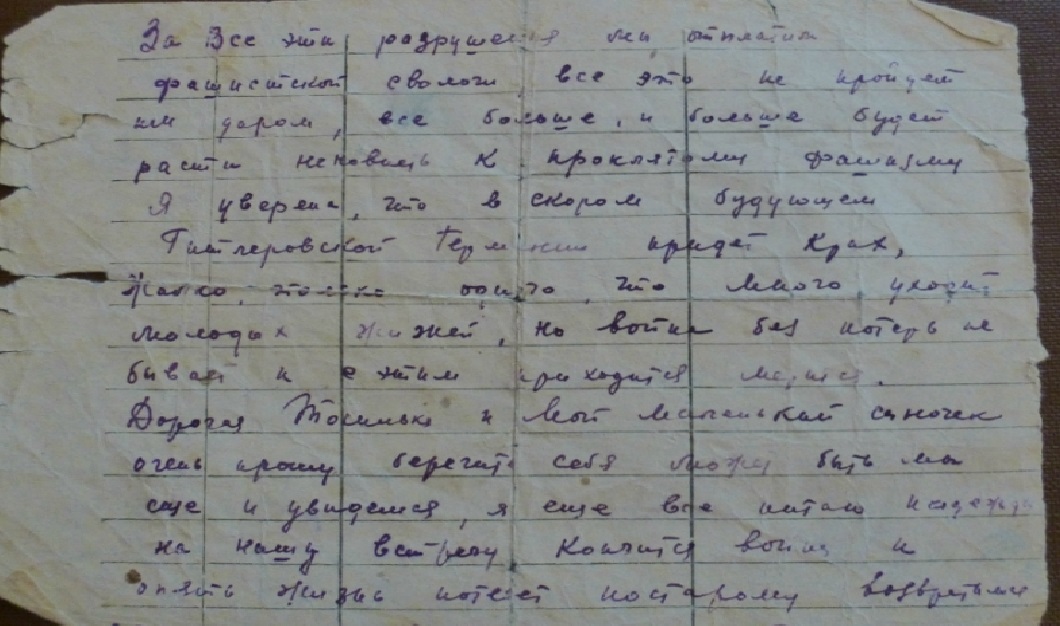 За Все эти разрушения мы отплатим
фашистской сволочи, все это не пройдет
им даром, все больше, и больше будет
расти ненависть к проклятому фашизму
Я уверена, что в скором будующем
Гитлеровской Германии придет Крах,
Жалко, только одного, что много уходит
молодых жизней, но войны без потерь не
бывает и с этим приходится мерится.
Дорогая Тосинька и Мой маленькай сыночек
очень прошу берегите себя может быть мы
еще и увидемся, я еще все питаю надежду
на нашу встречу Кончится война и
опять жизнь потечет постарому